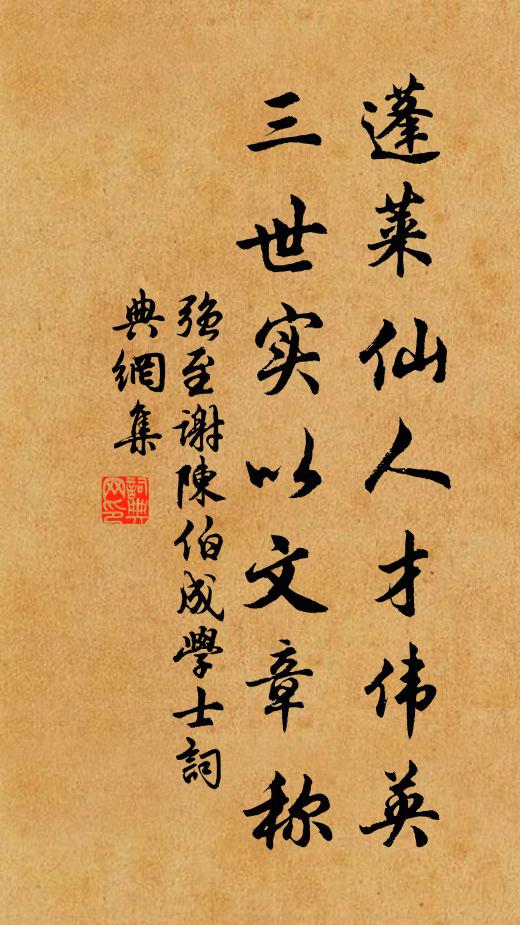 蓬莱仙人才伟英
三世实以文章称
強至谢陳伯成學士詞
典網集
詞典
网印